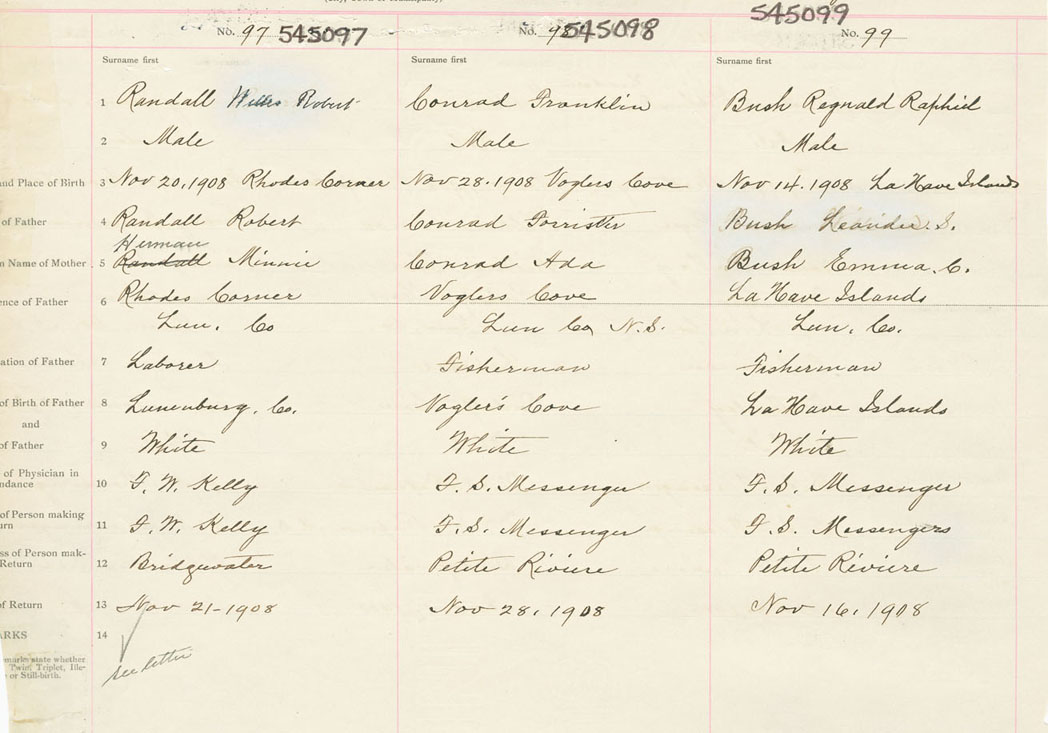 No. 97 545097
Surname first
1 Randall Willis Robert
2 Male
and Place of Birth 3 Nov 20, 1908 Rhodes Corner
of Father 4 Randall Robert
Herman
Name of Mother 5 Randall Minnie
ence of Father 6 Rhodes Corner
Lun. Co
ation of Father 7 Laborer
of Birth of Father 8 Lunenburg. Co.
and
of Father 9 White
of Physician in
ndance 10 F. W. Kelly
of Person making
urn 11 F. W. Kelly
ss of Person mak-
Return 12 Bridgewater
of Return 13 Nov 21-1908
ARKS 14
see letter
emarks state whether
Twin, Triplet, Ille-
or Still-birth.
No. 98 545098
Surname first
Conrad Franklin
Male
Nov 28. 1908 Voglers Cove
Conrad Forrister
Conrad Ada
Voglers Cove
Lun Co N.S.
Fisherman
Vogler's Cove
White
F. S. Messenger
F. S. Messenger
Petite Riviere
Nov 28. 1908
545099
No. 99
Surname first
Bush Regnald Raphiel
Male
Nov 14. 1908 La Have Islands
Bush Leander. S.
Bush Emma. C.
La Have Islands
Lun. Co.
Fisherman
La Have Islands
White
F. S. Messenger
F. S. Messengers
Petite Riviere
Nov 16, 1908